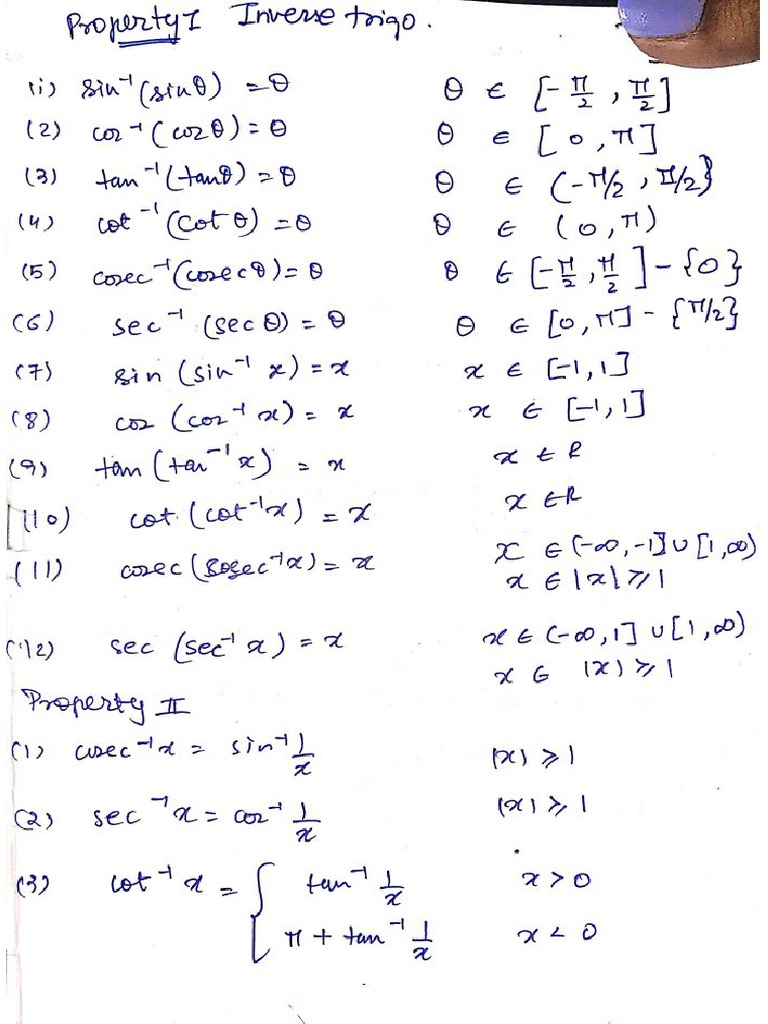 Property I Inverse trigo.
(i) sin⁻¹(sinθ) = θ θ ∈ [-π/2, π/2]
(2) cos⁻¹(cosθ) = θ θ ∈ [0, π]
(3) tan⁻¹(tanθ) = θ θ ∈ (-π/2, π/2}
(4) cot⁻¹(cot θ) = θ θ ∈ (0, π)
(5) cosec⁻¹(cosecθ) = θ θ ∈ [-π/2, π/2] - {0}
(6) sec⁻¹(sec θ) = θ θ ∈ [0, π] - {π/2}
(7) sin (sin⁻¹ x) = x x ∈ [-1, 1]
(8) cos (cos⁻¹ x) = x x ∈ [-1, 1]
(9) tan (tan⁻¹x) = x x ∈ R
(10) cot (cot⁻¹x) = x x ∈ R
(11) cosec (cosec⁻¹x) = x x ∈ (-∞, -1] ∪ [1, ∞)
x ∈ |x| ⩾ 1
(12) sec (sec⁻¹ x) = x x ∈ (-∞, 1] ∪ [1, ∞)
x ∈ |x| ⩾ 1
Property II
(1) cosec⁻¹x = sin⁻¹ 1/x |x| ⩾ 1
(2) sec⁻¹x = cos⁻¹ 1/x |x| ⩾ 1
(3) cot⁻¹ x = { tan⁻¹ 1/x x > 0
π + tan⁻¹ 1/x x < 0